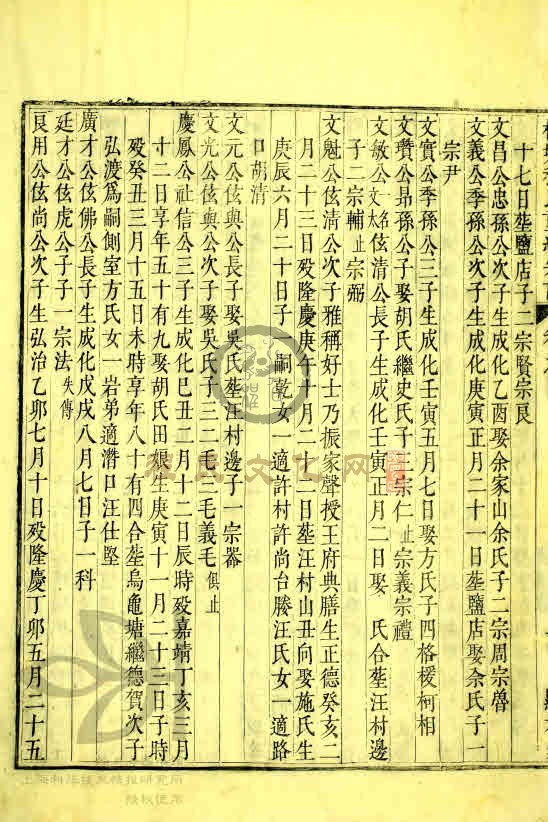 十七日塟鹽店子二宗賢宗良
文昌公忠孫公次子生成化乙酉娶余家山余氏子二宗周宗魯
文義公季孫公次子生成化庚寅正月二十一日塟鹽店娶余氏子一
宗尹
文實公季孫公三子生成化壬寅五月七日娶方氏子四格楥柯相
文瓚公昻孫公子娶胡氏繼史氏子三宗仁止宗義宗禮
文敏公一名文太伭清公長子生成化壬寅正月二日娶 氏合塟汪村邊
子二宗輔止宗弼
文魁公伭清公次子雅稱好士乃振家聲授王府典膳生正德癸亥二
月二十三日殁隆慶庚午十月二十二日塟汪村山丑向娶施氏生
庚辰六月二十日子 嗣乾女一適許村許尚台媵汪氏女一適路
口胡清
文元公伭與公長子娶吳氏塟汪村邊子一宗器
文光公伭與公次子娶吳氏子三二毛三毛義毛俱止
慶鳳公社信公三子生成化巳丑二月十二日辰時殁嘉靖丁亥三月
十二日享年五十有九娶胡氏田娘生庚寅十一月二十三日子時
殁癸丑三月十五日未時享年八十有四合塟烏龜塘繼德賀次子
弘渡爲嗣側室方氏女一岩弟適潛口汪仕堅
廣才公伭佛公長子生成化戊戌八月七日子一科
廷才公伭虎公子子一宗法失傳
良用公伭尚公次子生弘治乙卯七月十日殁隆慶丁卯五月二十五